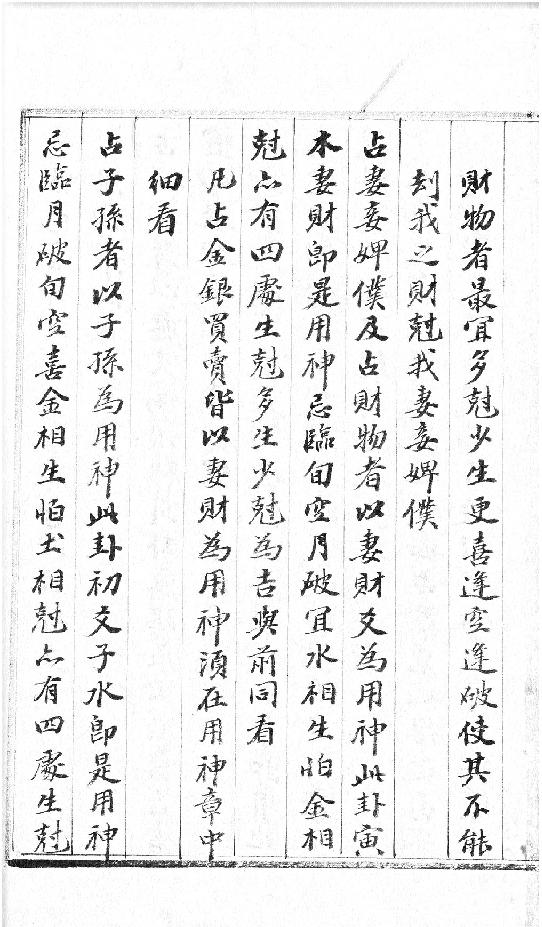 財物者最宜多尅少生更喜逢空逢破使其不能
刦我之財尅我妻妾婢僕
占妻妾婢僕及占財物者以妻財爻為用神此卦寅
木妻財即是用神忌臨旬空月破宜水相生怕金相
尅亦有四處生尅多生少尅為吉與前同看
凡占金銀買賣皆以妻財為用神須在用神章中
細看
占子孫者以子孫為用神此卦初爻子水即是用神
忌臨月破旬空喜金相生怕土相尅亦有四處生尅